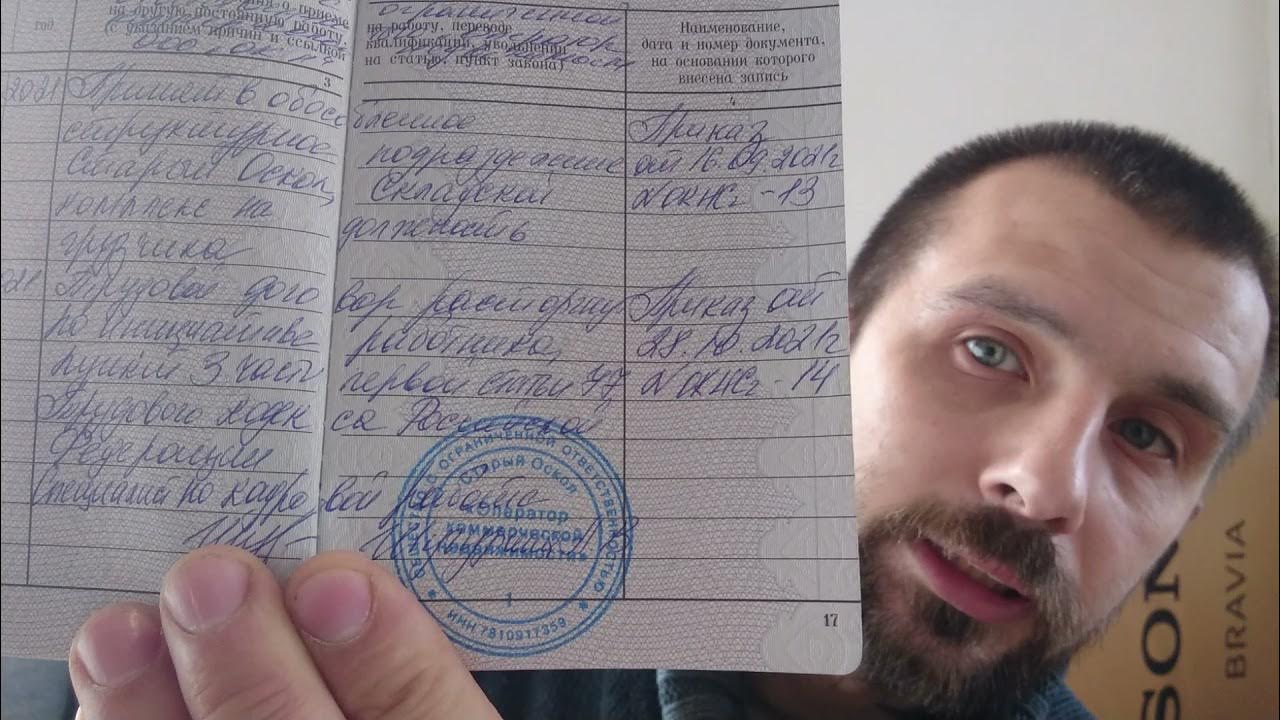 год
на другую постоянную работу,
(с указанием причин и ссылкой
на работу, переводе
квалификации, увольнении
на статью, пункт закона)
Наименование,
дата и номер документа,
на основании которого
внесена запись
3
4
2021 Принят в обособленное Приказ
структурное подразделение от 16.09.2021г
Старый Оскол, Складской №
комплекс на должность
грузчика
Трудовой договор расторгнут Приказ от
по инициативе работника, 28.10.2021г
пункт 3 части первой статьи 77 №
Трудового кодекса Российской
Федерации
Специалист по кадровой работе
ОГРАНИЧЕННОЙ ОТВЕТСТВЕННОСТЬЮ
Старый Оскол
«Оператор
коммерческой
недвижимости»
1
ИНН 7810911359
17
SON
BRAVIA